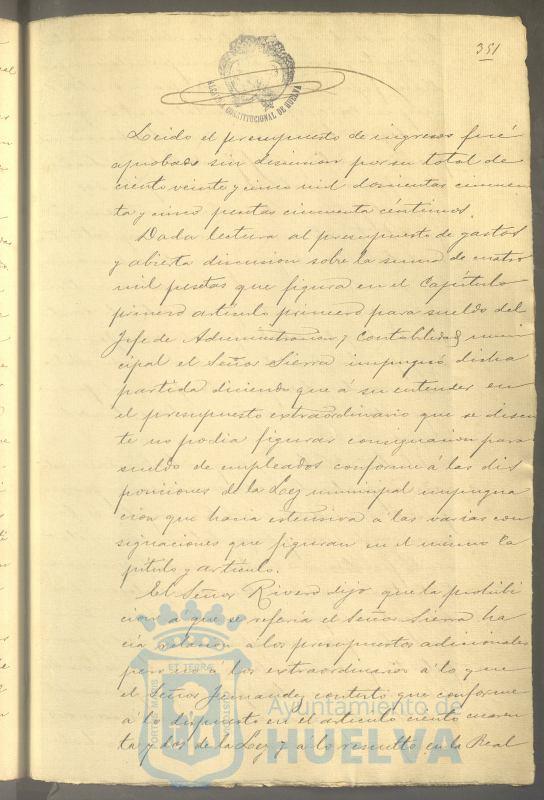 351
ALCALDIA CONSTITUCIONAL DE HUELVA
Leido el presupuesto de ingresos fué
aprobado sin discusion por su total de
ciento veinte y cinco mil doscientas cincuen
ta y cinco pesetas cincuenta céntimos.
Dada lectura al presupuesto de gastos
y abierta discusion sobre la suma de cuatro
mil pesetas que figura en el Capítulo
primero artículo primero para sueldo del
Jefe de Administracion y Contabilidad muni
cipal el Señor Sierra impugnó dicha
partida diciendo que á su entender en
el presupuesto extraordinario que se discu
te no podia figurar consignacion para
sueldo de empleados conforme á las dis
posiciones de la Ley municipal impugna
cion que hacia estensiva a las varias con
signaciones que figuran en el mismo Ca
pítulo y artículo.
El Señor Rivero dijo que la prohibi
cion a que se referia el Señor Sierra ha
cía relacion a los presupuestos adicionales
pero no a los extraordinarios á lo que
el Señor Fernandez contestó que conforme
á lo dispuesto en el artículo ciento cuaren
ta y dos de la Ley y á lo resuelto en la Real
PORTUS MARIS ET TERRÆ CUSTODIA
Ayuntamiento de
HUELVA